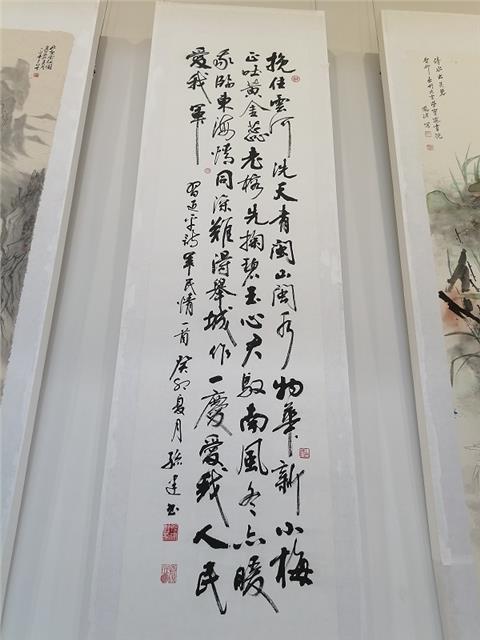 挽住雲河洗天青閩山閩水物華新小梅
正吐黄金蕊老榕先掬碧玉心君馭南風冬亦暖
我臨東海情同深難得舉城作一慶愛我人民
愛我軍
習近平詩軍民情一首 癸卯夏月